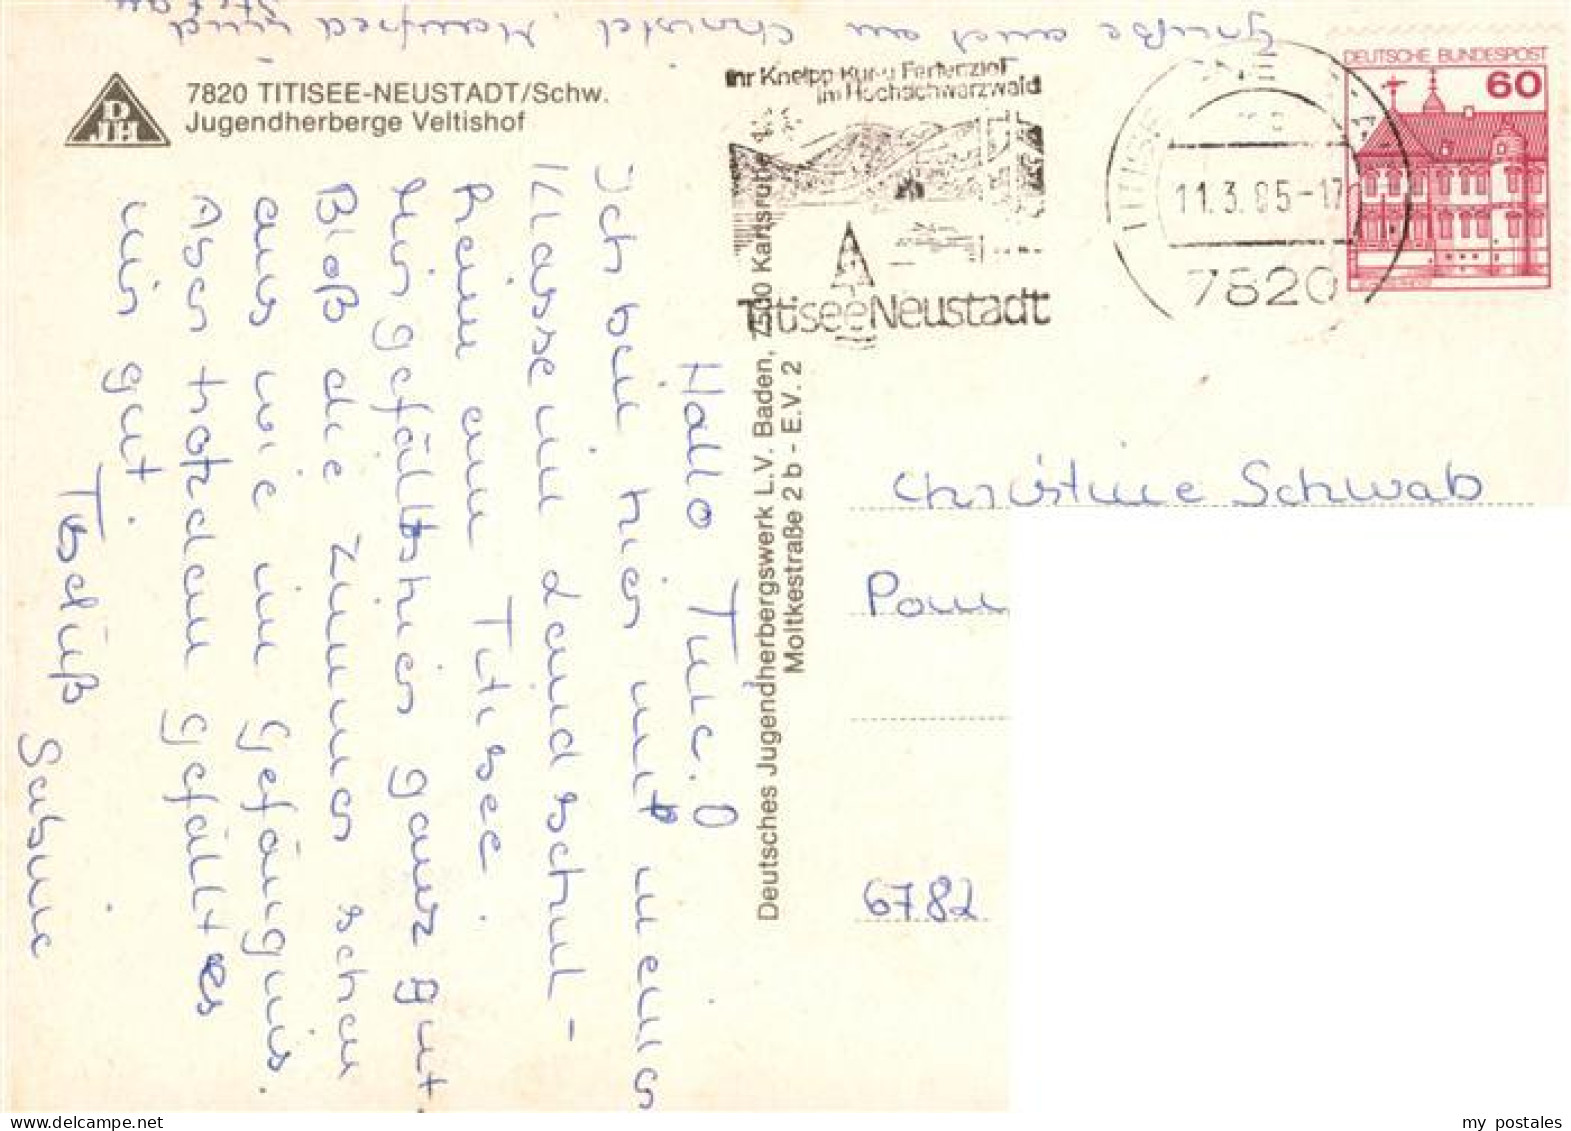 Grüße auch an Christel, Manfred und
Stefan
DJH
7820 TITISEE-NEUSTADT/Schw.
Jugendherberge Veltishof
Ihr Kneipp Kur- u Ferienziel
im Hochschwarzwald
TitiseeNeustadt
TITISEE-NEUSTADT
11.3.85-17
7820
DEUTSCHE BUNDESPOST
60
Hallo Tine!
Ich bin hier mit meiner
Klasse im Landschul-
heim am Titisee.
Mir gefällts hier ganz gut.
Bloß die Zimmer schau
aus wie im Gefängnis.
Aber trotzdem gefällt es
mir gut.
Tschüß
Sabine
Deutsches Jugendherbergswerk L.V. Baden, 7500 Karlsruhe 1
Moltkestraße 2 b - E.V. 2
Christine Schwab
6782
my_postales